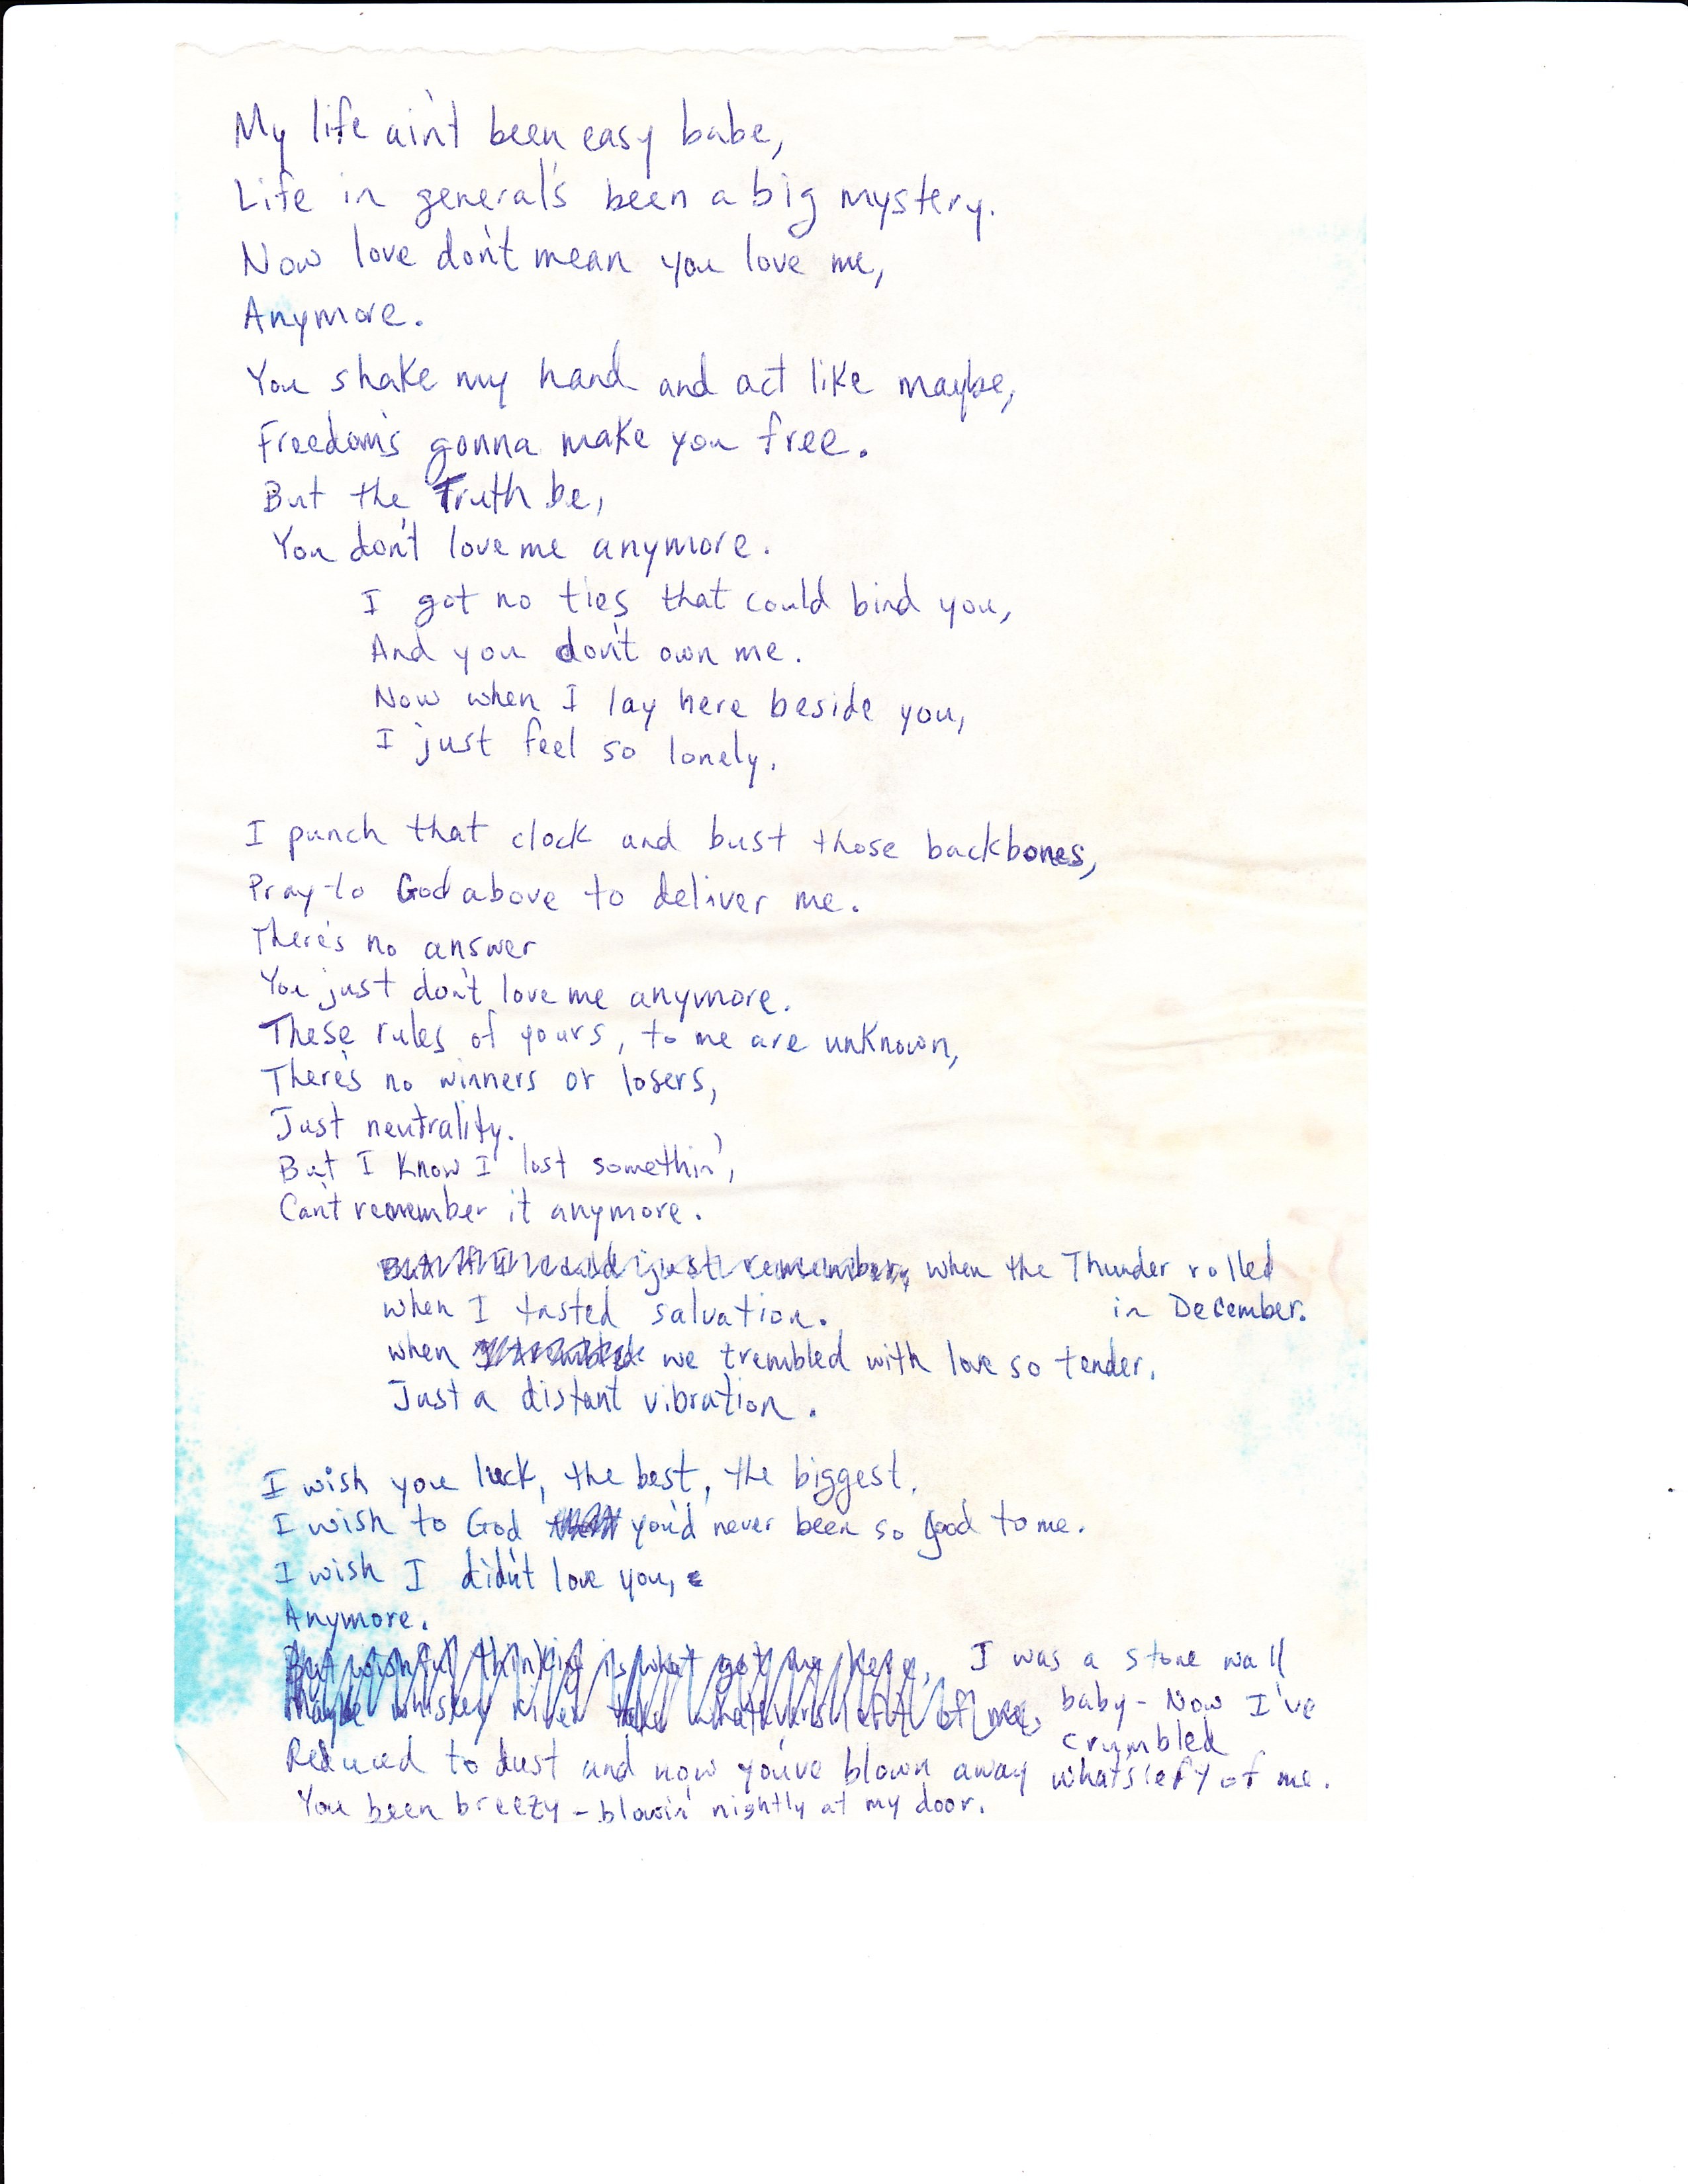 My life ain't been easy babe,
Life in general's been a big mystery.
Now love don't mean you love me,
Anymore.
You shake my hand and act like maybe,
Freedom's gonna make you free.
But the Truth be,
You don't love me anymore.
I got no ties that could bind you,
And you don't own me.
Now when I lay here beside you,
I just feel so lonely.
I punch that clock and bust those backbones,
Pray to God above to deliver me.
There's no answer
You just don't love me anymore.
These rules of yours, to me are unknown,
There's no winners or losers,
Just neutrality.
But I know I lost somethin',
Can't remember it anymore.
But if I could just remember, when the Thunder rolled
in December.
when I tasted salvation.
when I trembled we trembled with love so tender.
Just a distant vibration.
I wish you luck, the best, the biggest.
I wish to God that you'd never been so good to me.
I wish I didn't love you,
Anymore.
But wishful thinking is what got me here, I was a stone wall
Maybe whiskey river take what's left of me, baby - Now I've
crumbled
Reduced to dust and now you've blown away what's left of me.
You been breezy - blowin' nightly at my door.